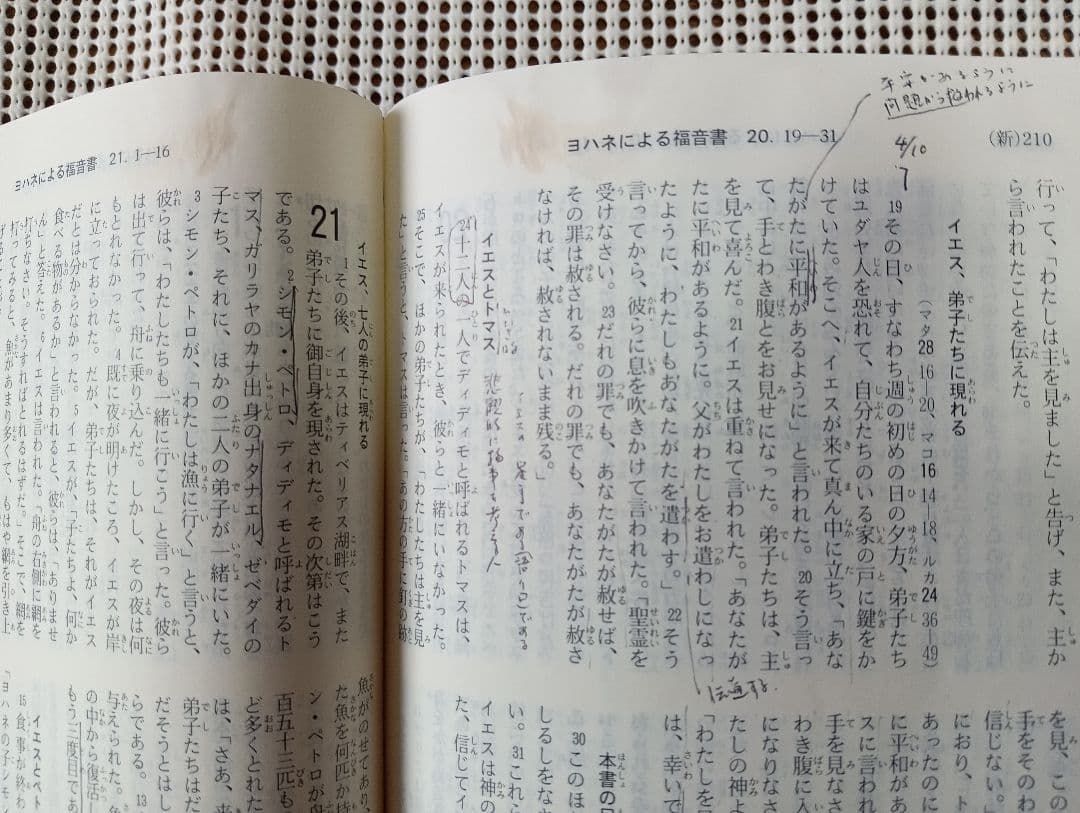 平安があるように
問題から救われるように
4/10
ヨハネによる福音書 20. 19—31
(新)210
行って、「わたしは主を見ました」と告げ、また、主か
ら言われたことを伝えた。
イエス、弟子たちに現れる
（マタ28 16—20、マコ16 14—18、ルカ24 36—49）
19その日、すなわち週の初めの日の夕方、弟子たち
はユダヤ人を恐れて、自分たちのいる家の戸に鍵をか
けていた。そこへ、イエスが来て真ん中に立ち、「あな
たがたに平和があるように」と言われた。20そう言っ
て、手とわき腹とをお見せになった。弟子たちは、主
を見て喜んだ。21イエスは重ねて言われた。「あなたが
たに平和があるように。父がわたしをお遣わしになっ
たように、わたしもあなたがたを遣わす。」22そう
言ってから、彼らに息を吹きかけて言われた。「聖霊を
受けなさい。23だれの罪でも、あなたがたが赦せば、
その罪は赦される。だれの罪でも、あなたがたが赦さ
なければ、赦されないまま残る。」
イエスとトマス
悲観的に物事を考える人
24十二人の一人でディディモと呼ばれるトマスは、
イエスが来られたとき、彼らと一緒にいなかった。
25そこで、ほかの弟子たちが、「わたしたちは主を見
た」と言うと、トマスは言った。「あの方の手に釘の跡
を見、この
手をそのわ
信じない。」
におり、ト
あったのに
に平和があ
スに言われ
手を見なさ
わき腹に入
になりなさ
たしの神よ
「わたしを
は、幸いで
本書の目
30このほ
しるしをな
い。31これら
イエスは神の
た、信じてイ
ヨハネによる福音書 21. 1—16
イエス、七人の弟子に現れる
21
1その後、イエスはティベリアス湖畔で、また
弟子たちに御自身を現された。その次第はこう
である。2シモン・ペトロ、ディディモと呼ばれるト
マス、ガリラヤのカナ出身のナタナエル、ゼベダイの
子たち、それに、ほかの二人の弟子が一緒にいた。
3シモン・ペトロが、「わたしは漁に行く」と言うと、
彼らは、「わたしたちも一緒に行こう」と言った。彼ら
は出て行って、舟に乗り込んだ。しかし、その夜は何
もとれなかった。4既に夜が明けたころ、イエスが岸
に立っておられた。だが、弟子たちは、それがイエス
だとは分からなかった。5イエスが、「子たちよ、何か
食べる物があるか」と言われると、彼らは、「ありませ
ん」と答えた。6イエスは言われた。「舟の右側に網を
打ちなさい。そうすればとれるはずだ。」そこで、網を
打ってみると、魚があまり多くて、もはや網を引き上
魚がのせてあり、
た魚を何匹か持
ン・ペトロが舟
百五十三匹も
ど多くとれた
は、「さあ、来
弟子たちはだ
だそうとはし
らである。13
与えられた。魚
の中から復活
もう三度目であ
イエスとペト
15食事が終わ
「ヨハネの子シモン